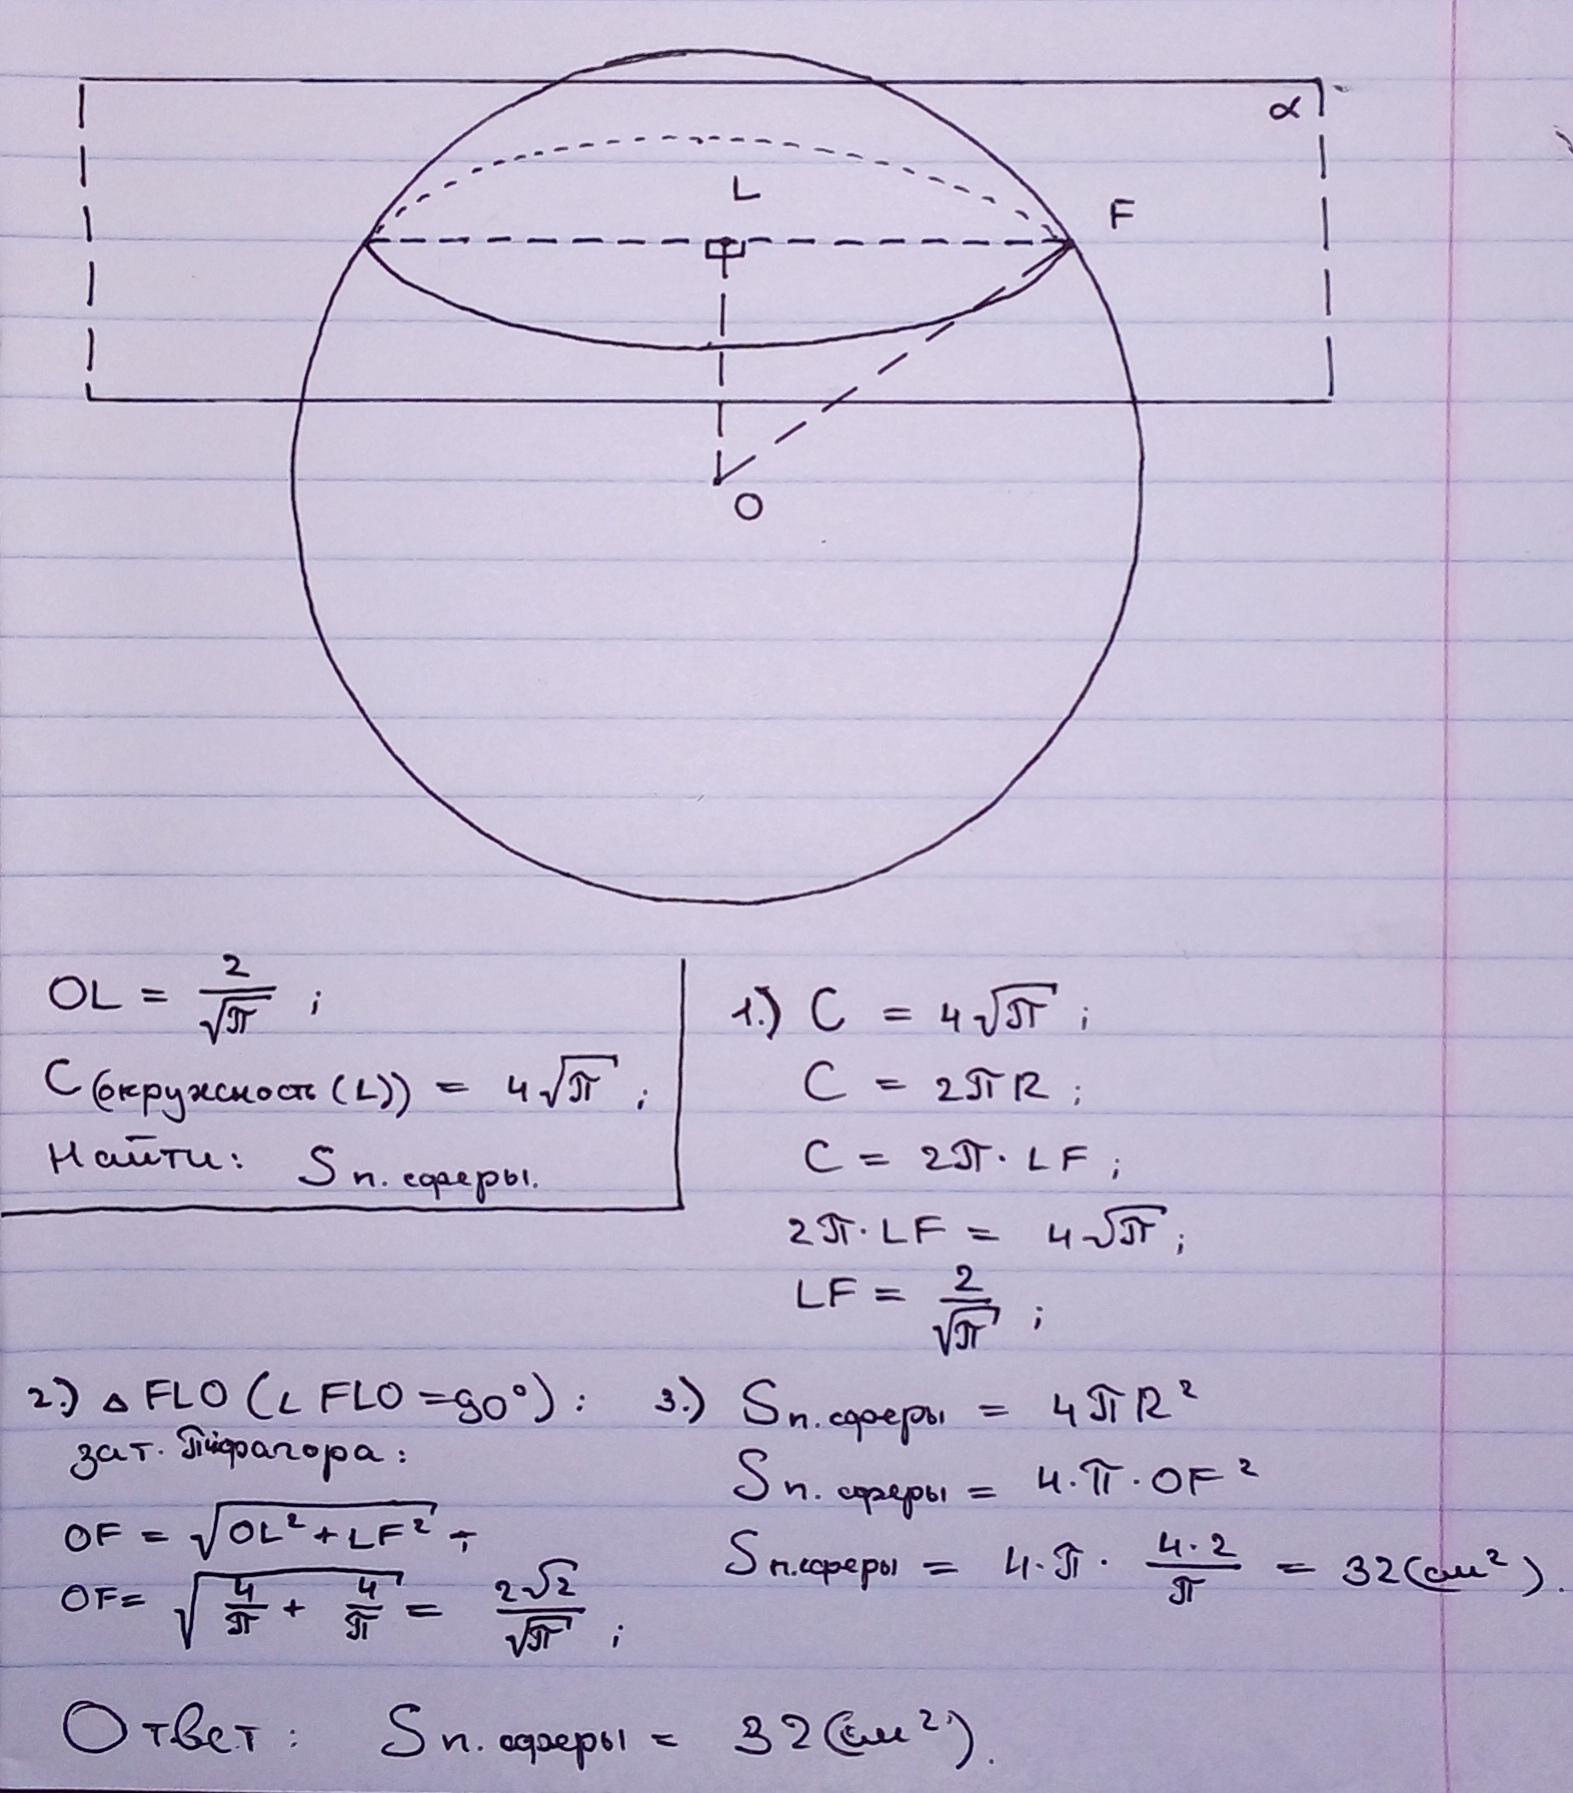 α
L
F
O
OL = 2/√π ;
C(окружность(L)) = 4√π ;
Найти: Sп. сферы.
1.) C = 4√π ;
C = 2πR ;
C = 2π · LF ;
2π · LF = 4√π ;
LF = 2/√π ;
2.) △ FLO (∠ FLO = 90°) :
за т. Пифагора :
OF = √(OL² + LF²) ;
OF = √(4/π + 4/π) = 2√2/√π ;
3.) Sп. сферы = 4πR²
Sп. сферы = 4 · π · OF²
Sп. сферы = 4 · π · 4·2/π = 32 (см²).
Ответ : Sп. сферы = 32 (см²).